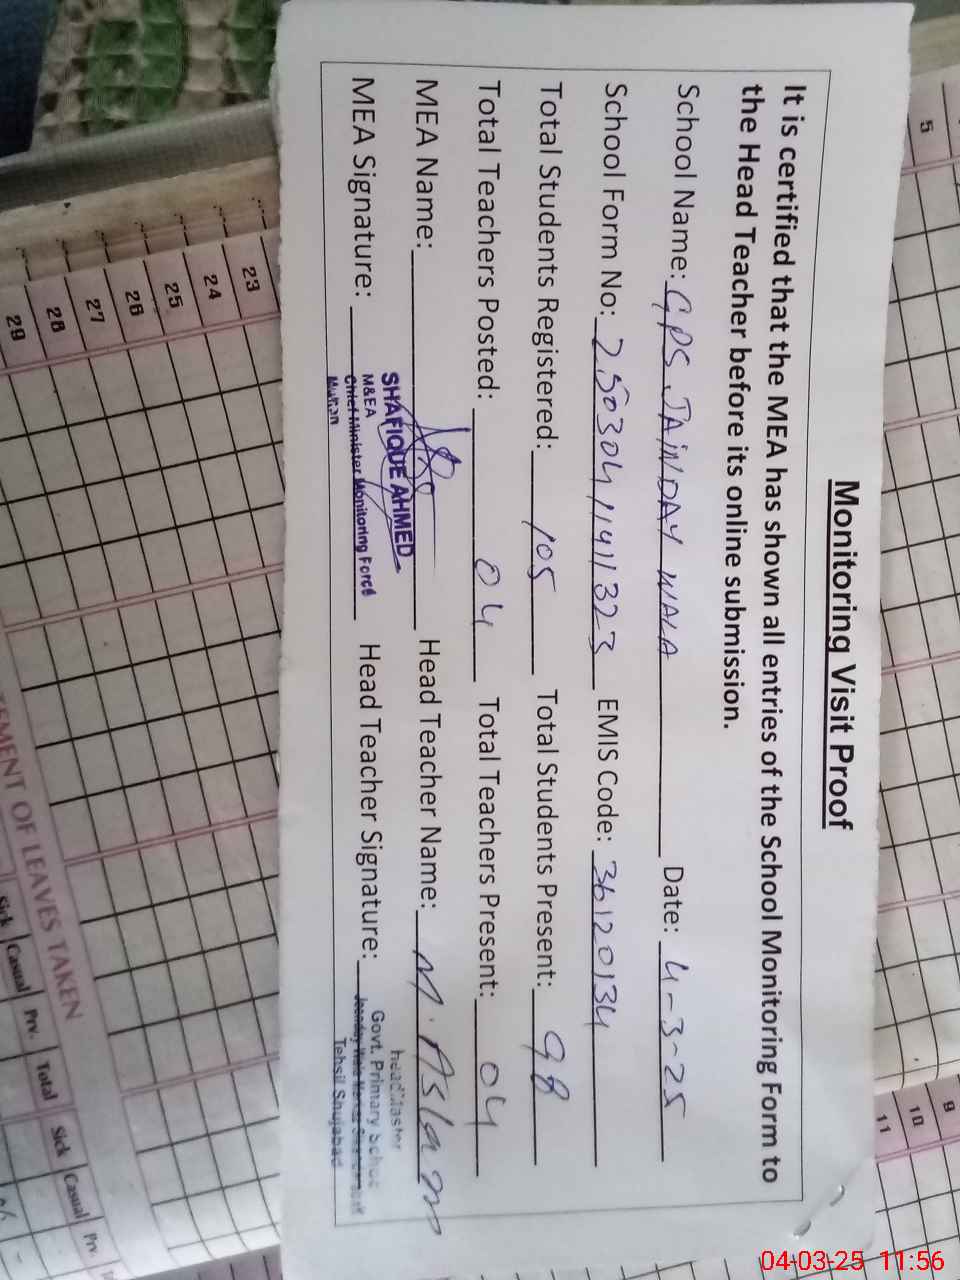 Monitoring Visit Proof
It is certified that the MEA has shown all entries of the School Monitoring Form to
the Head Teacher before its online submission.
School Name: GPS JAINDAY WALA Date: 4-3-25
School Form No: 2503041141323 EMIS Code: 36120134
Total Students Registered: 105 Total Students Present: 98
Total Teachers Posted: 04 Total Teachers Present: 04
MEA Name: Head Teacher Name: M. Aslam
MEA Signature: Head Teacher Signature:
SHAFIQUE AHMED
M&EA
Chief Minister Monitoring Force
Multan
HeadMaster
Govt. Primary School
Tehsil Shujabad
5
9
10
11
23
24
25
26
27
28
29
TEMENT OF LEAVES TAKEN
Sick Casual Prv. Total Sick Casual Prv.
04-03-25 11:56